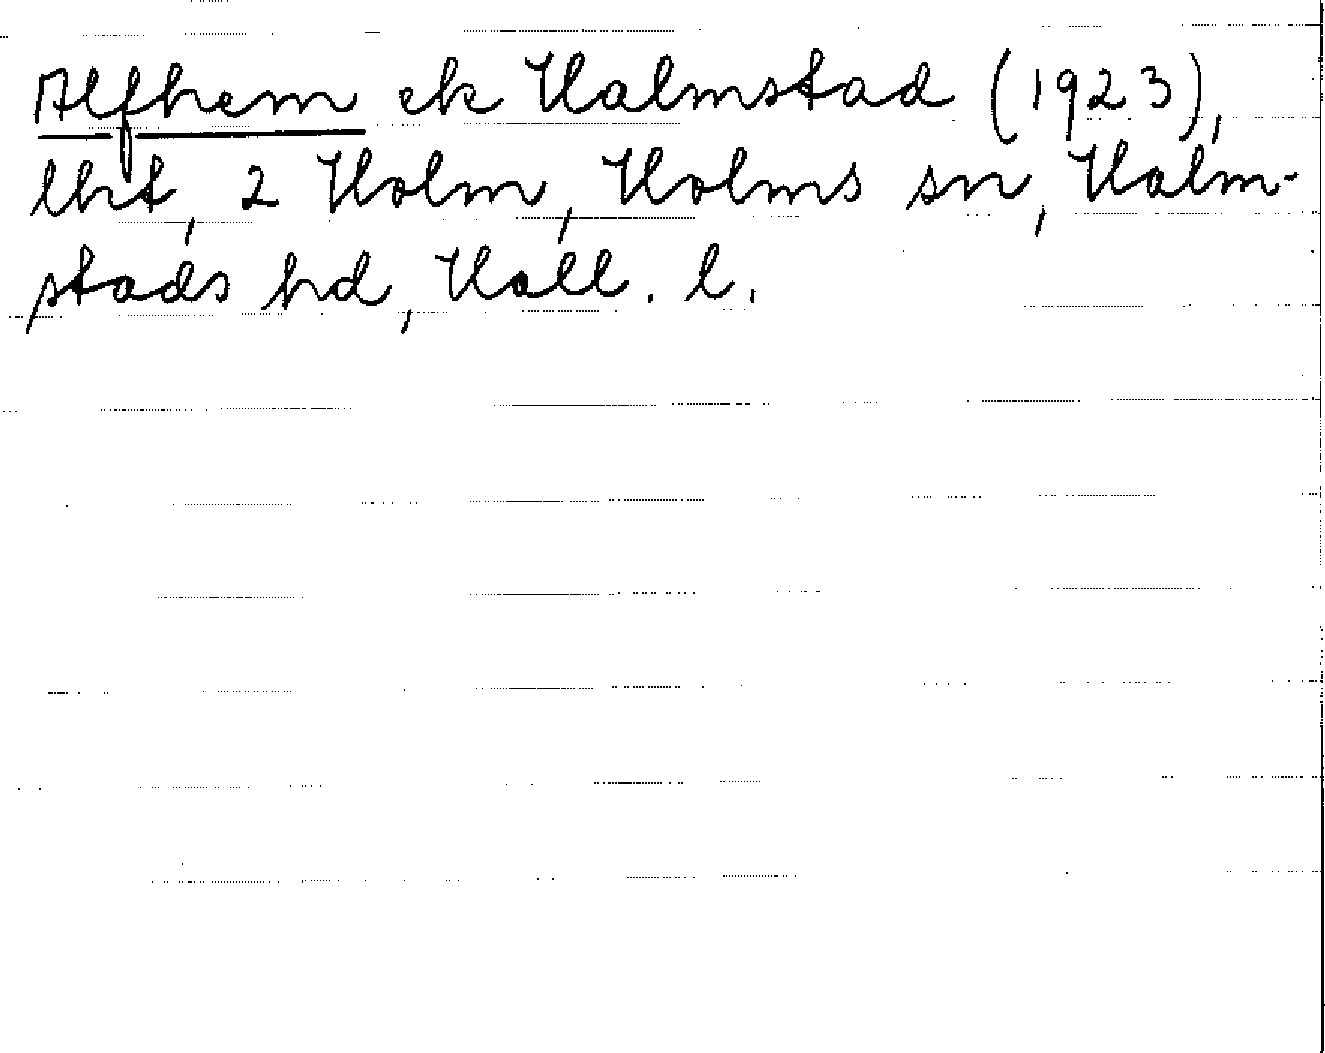 Alfhem ek Halmstad (1923),
lht, 2 Holm, Holms sn, Halm-
stads hd, Hall. l.